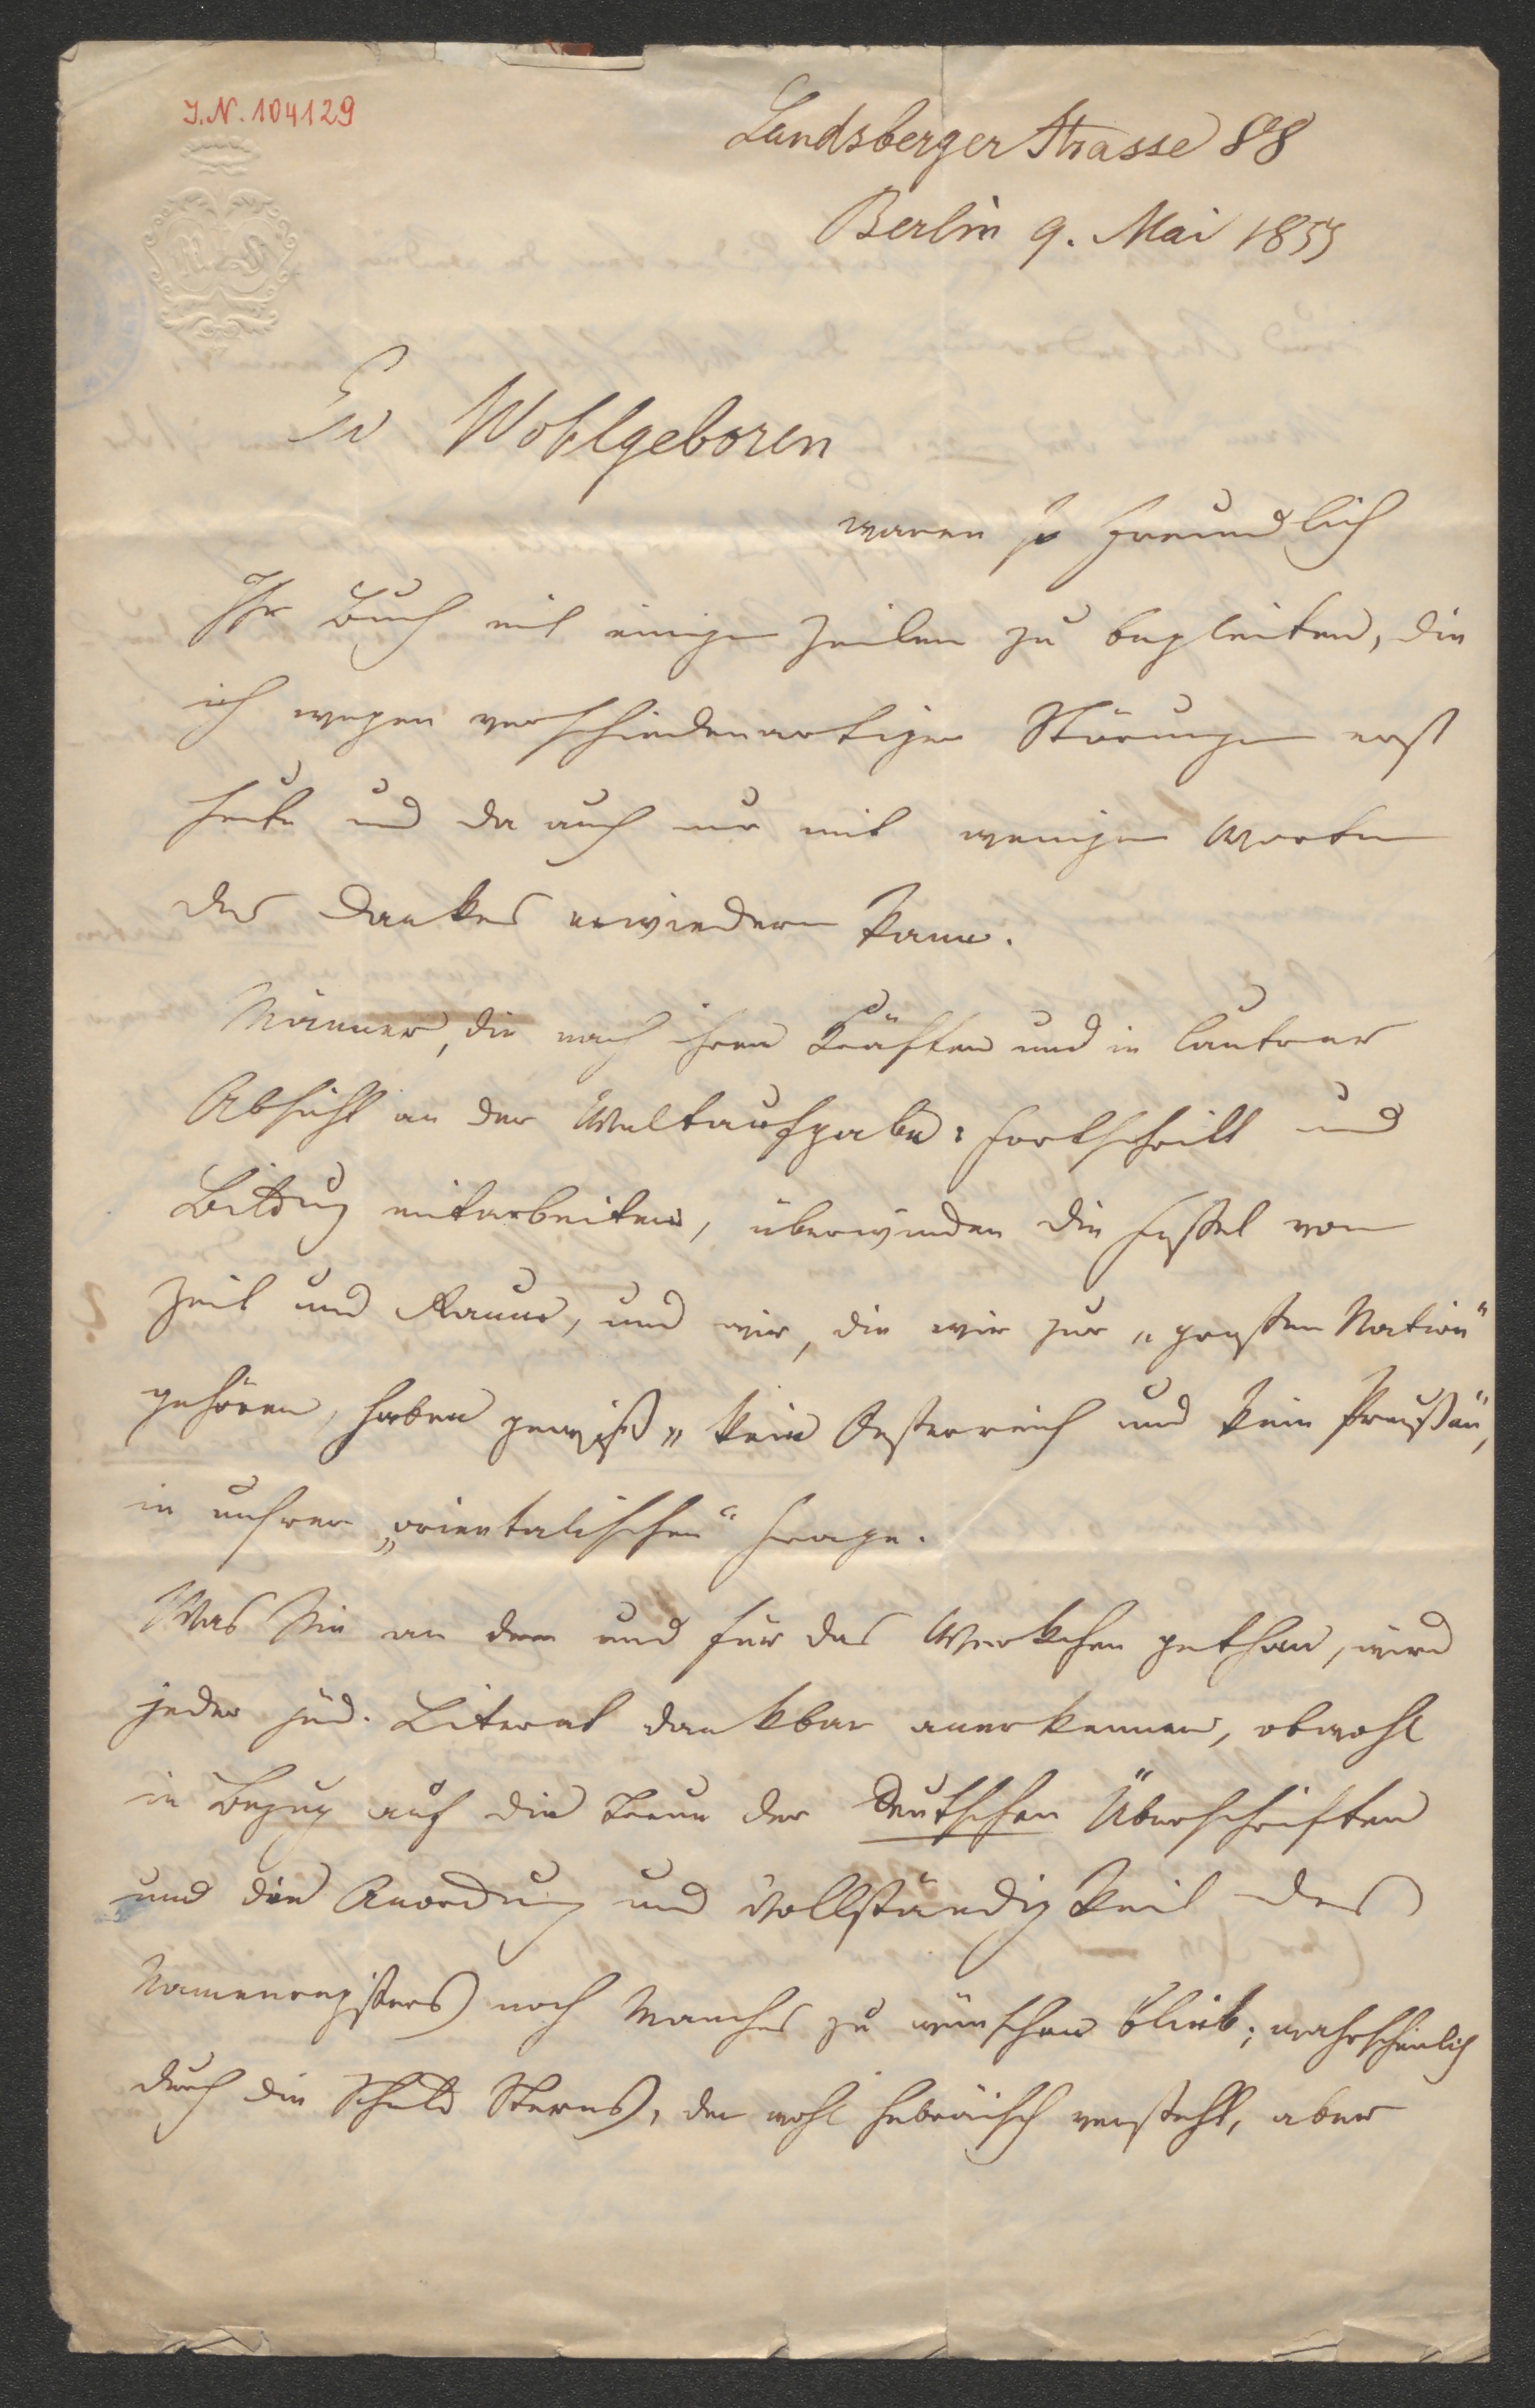 J.N. 104129
Landsberger Strasse 88
Berlin 9. Mai 1855
Ew Wohlgeboren
waren so freundlich
Ihr Buch mit einigen Zeilen zu begleiten, die
ich wegen verschiedenartiger Störungen erst
heute und da auch nur mit wenigen Worten
des Dankes erwiedern kann.
Männer, die nach ihren Kräften und in lautrer
Absicht an der Weltaufgabe: Fortschritt und
Bildung mitarbeiten, überwinden die Fessel von
Zeit und Raum, und wir, die wir zur „grossen Nation"
gehören, haben gewiß „kein Oesterreich und kein Preußen"
in unsrer „orientalischen" Frage.
Was Sie an dem und für das Werkchen gethan, wird
jeder jüd. Literat dankbar anerkennen, obwohl
in Bezug auf die Treue der deutschen Überschriften
und die Anordnung und Vollständigkeit des
Namenregisters noch Manches zu wünschen blieb; wahrscheinlich
durch die Schuld Sterns, der wohl hebräisch versteht, aber